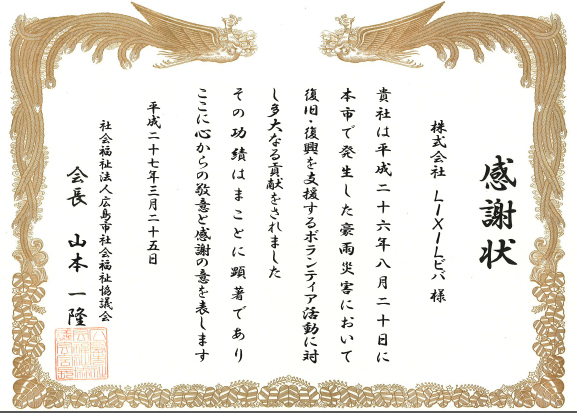 感謝状
株式会社 LIXILビバ 様
貴社は平成二十六年八月二十日に
本市で発生した豪雨災害において
復旧・復興を支援するボランティア活動に対
し多大なる貢献をされました
その功績はまことに顕著であり
ここに心からの敬意と感謝の意を表します
平成二十七年三月二十五日
社会福祉法人広島市社会福祉協議会
会長 山本 一隆